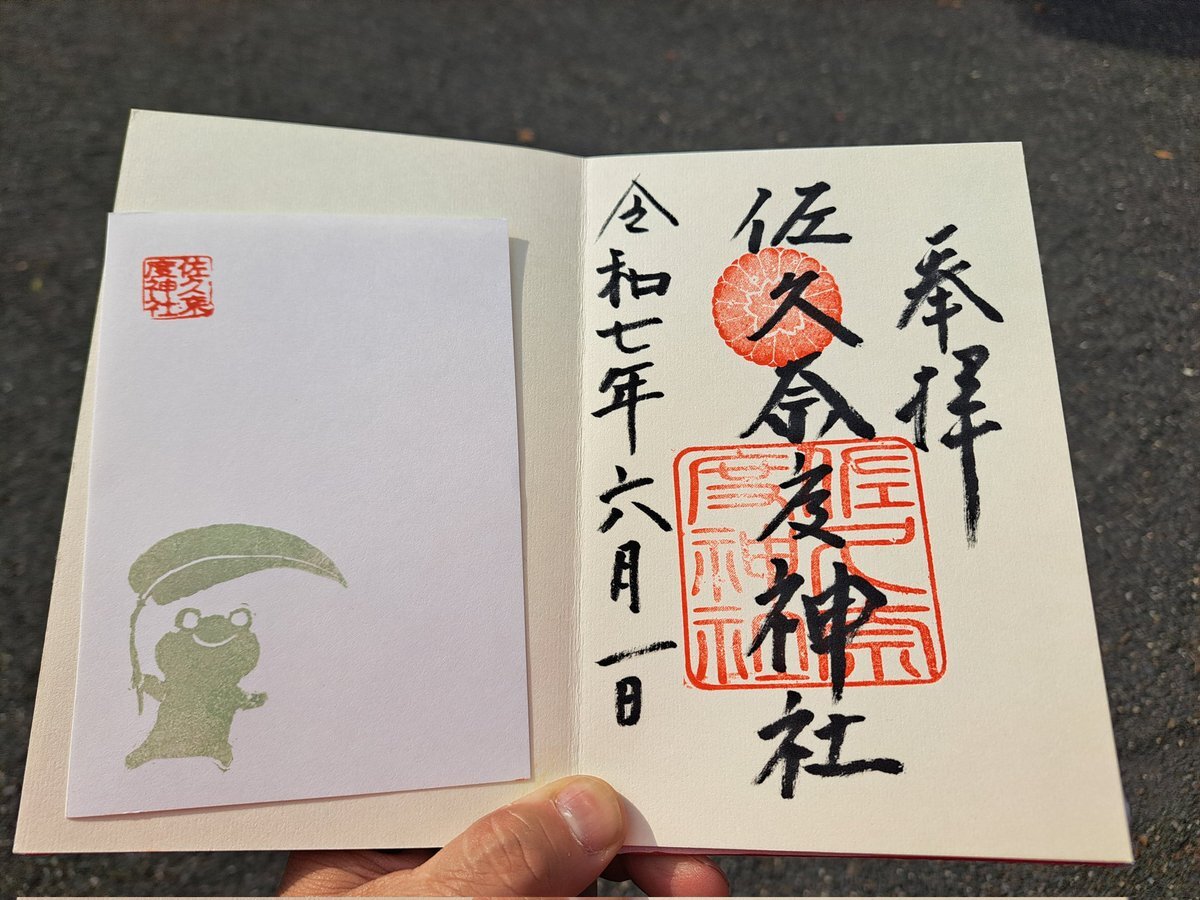 奉拝
佐久奈度神社
佐久奈度神社
令和七年六月一日
佐久奈度神社